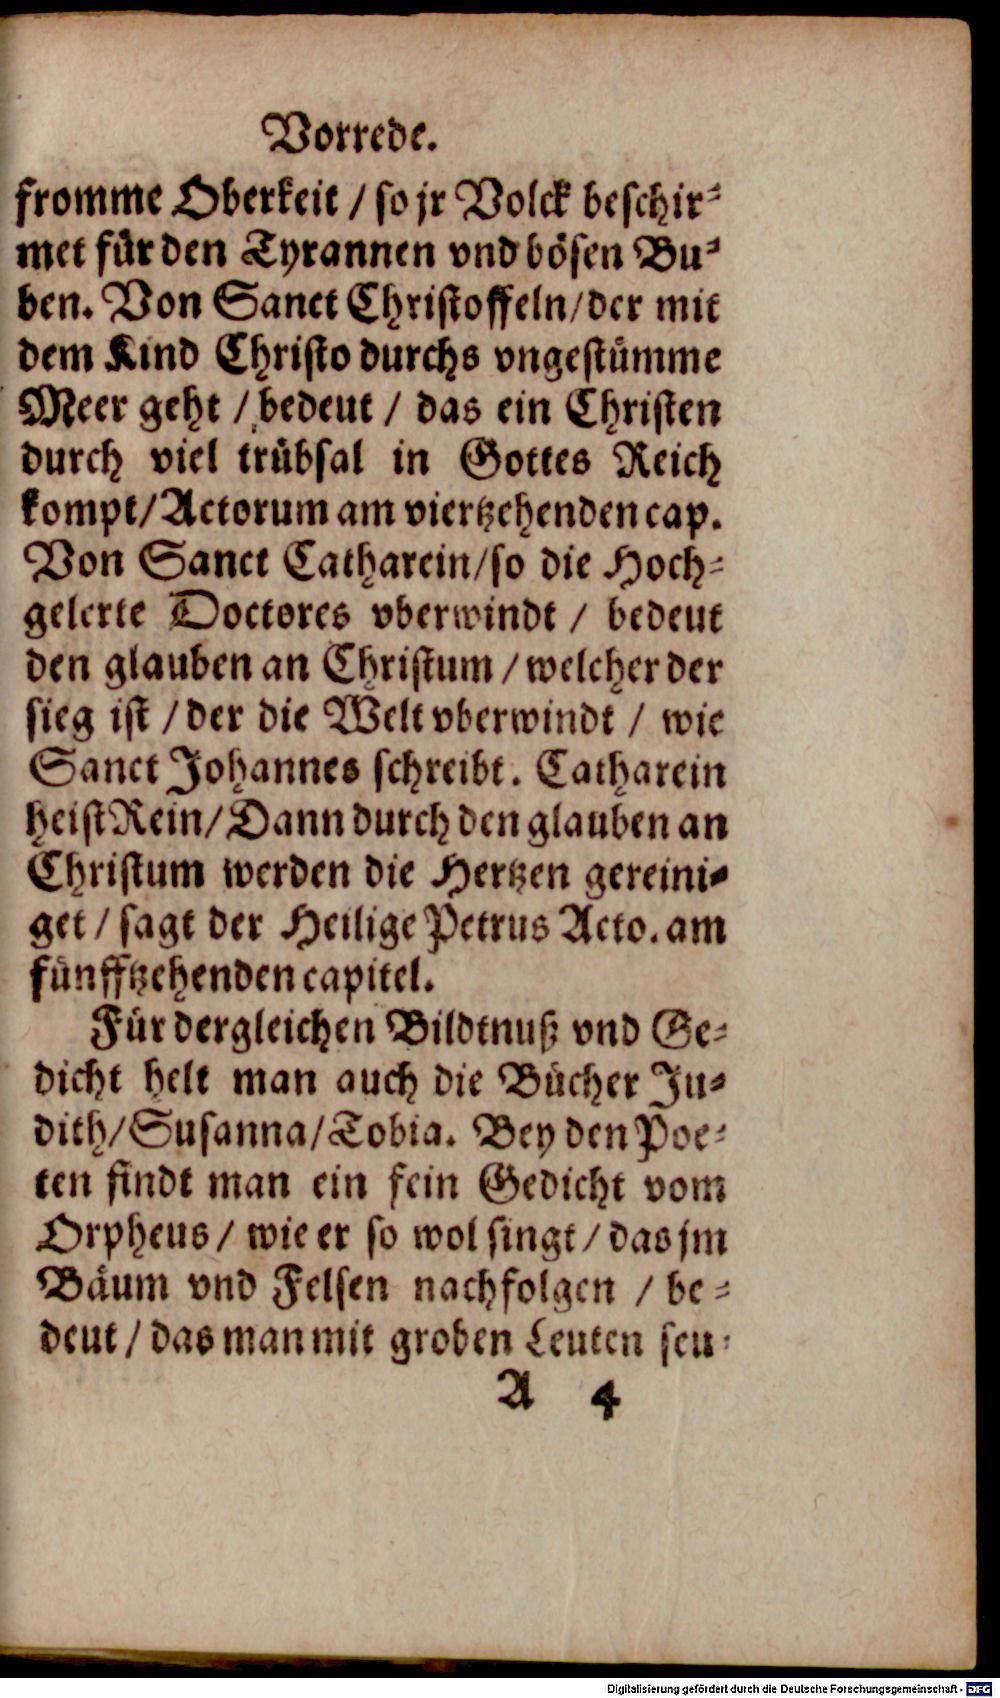 Vorrede.
fromme Oberkeit / so jr Volck beschir⸗
met für den Tyrannen vnd bösen Bu⸗
ben. Von Sanct Christoffeln/der mit
dem Kind Christo durchs vngestümme
Meer geht / bedeut / das ein Christen
durch viel trübsal in Gottes Reich
kompt/Actorum am viertzehenden cap.
Von Sanct Catharein/so die Hoch⸗
gelerte Doctores vberwindt / bedeut
den glauben an Christum / welcher der
sieg ist / der die Welt vberwindt / wie
Sanct Johannes schreibt. Catharein
heist Rein/Dann durch den glauben an
Christum werden die Hertzen gereini⸗
get / sagt der Heilige Petrus Acto. am
fünfftzehenden capitel.
Für dergleichen Bildtnuß vnd Ge⸗
dicht helt man auch die Bücher Ju⸗
dith/Susanna/Tobia. Bey den Poe⸗
ten findt man ein fein Gedicht vom
Orpheus / wie er so wol singt / das jm
Bäum vnd Felsen nachfolgen / be⸗
deut / das man mit groben Leuten seu⸗
A 4
Digitalisierung gefördert durch die Deutsche Forschungsgemeinschaft - DFG